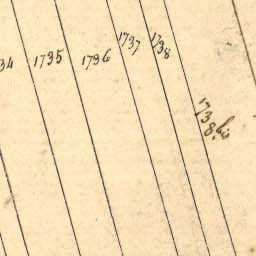 34
1735
1736
1737
1738
1738 bis